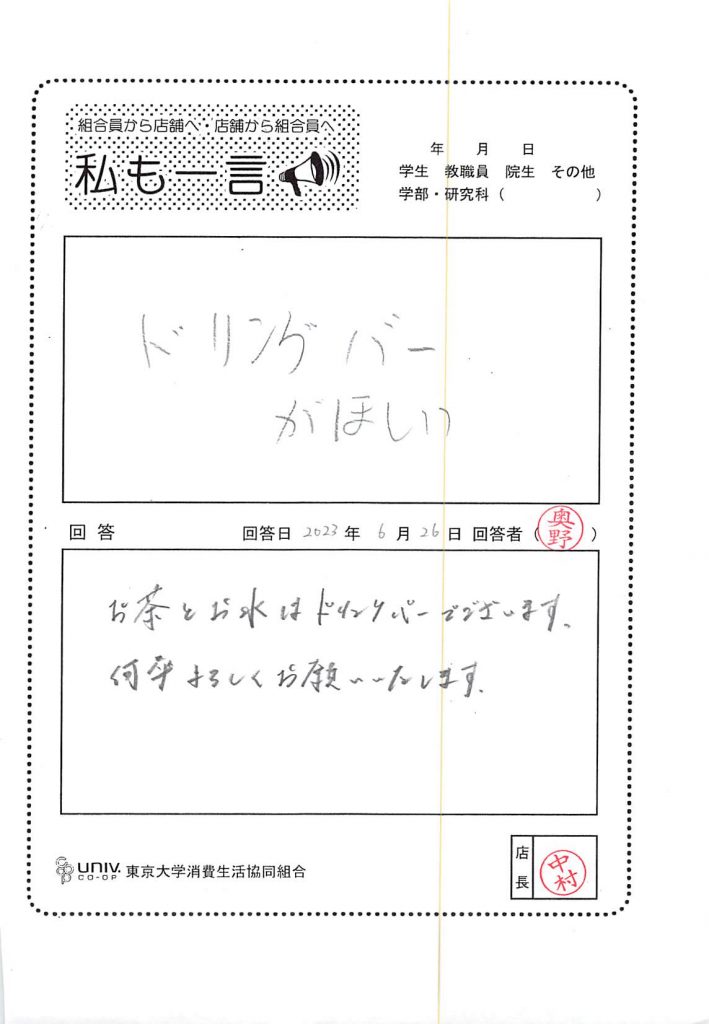 組合員から店舗へ・店舗から組合員へ
私も一言
年 月 日
学生 教職員 院生 その他
学部・研究科( )
ドリングバー
がほしい
回答 回答日 2023年 6月 26日 回答者(奥野)
お茶とお水はドリンクバーでございます。
何卒よろしくお願いいたします。
UNIV. CO-OP 東京大学消費生活協同組合
店長 中村